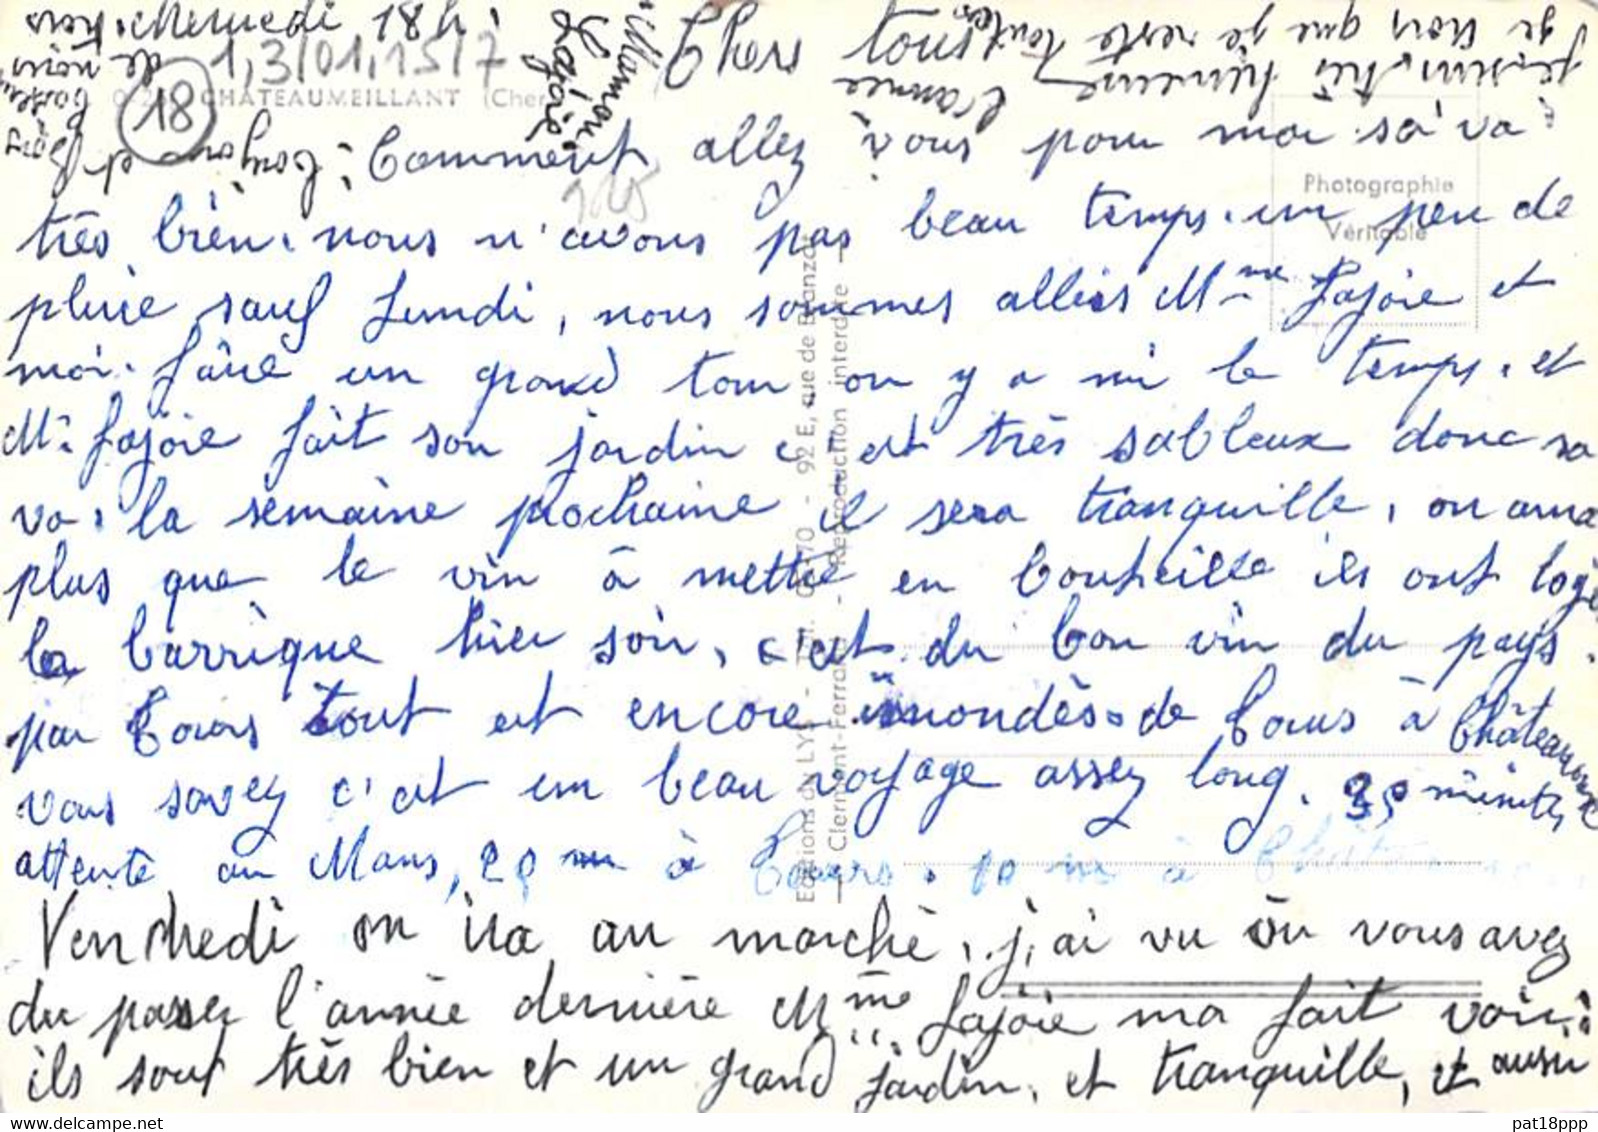 Mercredi 18 h.
Chers tous
CHÂTEAUMEILLANT (Cher)
18
Comment allez vous pour moi sa va
Photographie
Véritable
très bien. nous n'avons pas beau temps. un peu de
pluie sauf Lundi, nous sommes allés Mme Lajoie et
moi. faire un grand tour on y a mi le temps. et
Mr Lajoie fait son jardin c'est très sableux donc sa
va. la semaine prochaine il sera tranquille, on aura
plus que le vin à mettre en bouteille ils ont logé
la barrique hier soir, c'est du bon vin du pays.
par Tours tout est encore inondés. de Tours à Châteauroux
vous savez c'est un beau voyage assez long. 35 minutes
attente au Mans, 20 mn à Tours. 10 mn à
Vendredi on ira au marché, j'ai vu où vous avez
du passer l'année dernière Mme Lajoie ma fait voir.
ils sont très bien et un grand jardin, et tranquille, et aussi
je suis très heureuse
je crois que je reste toute
l'année
Maman
Lajoie
Editions du LYS
92 E, rue de Blanzat
— Clermont-Ferrand - Reproduction interdite —
pat18ppp